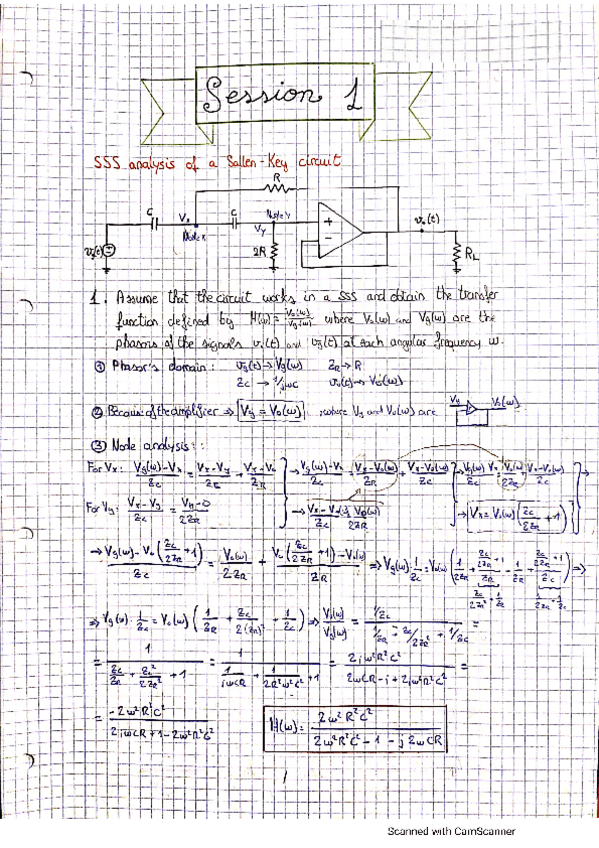 Session 1
SSS analysis of a Sallen-Key circuit
R
C Vx C Node Y
Node X Vy + v₀(t)
vg(t) 2R - RL
1. Assume that the circuit works in a SSS and obtain the transfer
function defined by H(ω) = V₀(ω)/Vg(ω) where V₀(ω) and Vg(ω) are the
phasors of the signals v₀(t) and vg(t) at each angular frequency ω.
① Phasor's domain: vg(t) → Vg(ω) ZR → R
Zc → 1/jωC v₀(t) → V₀(ω)
② Because of the amplifier ⇒ Vy = V₀(ω), where Vy and V₀(ω) are Vy V₀(ω)
③ Node analysis:
For Vx: (Vg(ω)-Vx)/Zc = (Vx-Vy)/Zc + (Vx-V₀)/ZR
For Vy: (Vx-Vy)/Zc = (Vy-0)/2ZR
→ Vx = V₀(ω)(Zc/2ZR + 1)
→ (Vg(ω) - V₀(Zc/2ZR + 1))/Zc = V₀(ω)/2ZR + (V₀(Zc/2ZR + 1) - V₀(ω))/ZR
⇒ Vg(ω) · 1/Zc = V₀(ω) (1/ZR + Zc/2(ZR)² + 1/Zc) ⇒ V₀(ω)/Vg(ω) = (1/Zc)/(1/ZR + Zc/2ZR² + 1/Zc) =
= 1/(Zc/ZR + Zc²/2ZR² + 1) = 2jω²R²C²/(2ωCR - i + 2jω²R²C²) =
= -2ω²R²C²/(2jωCR + 1 - 2ω²R²C²) H(ω) = 2ω²R²C²/(2ω²R²C² - 1 - j2ωCR)
1
Scanned with CamScanner